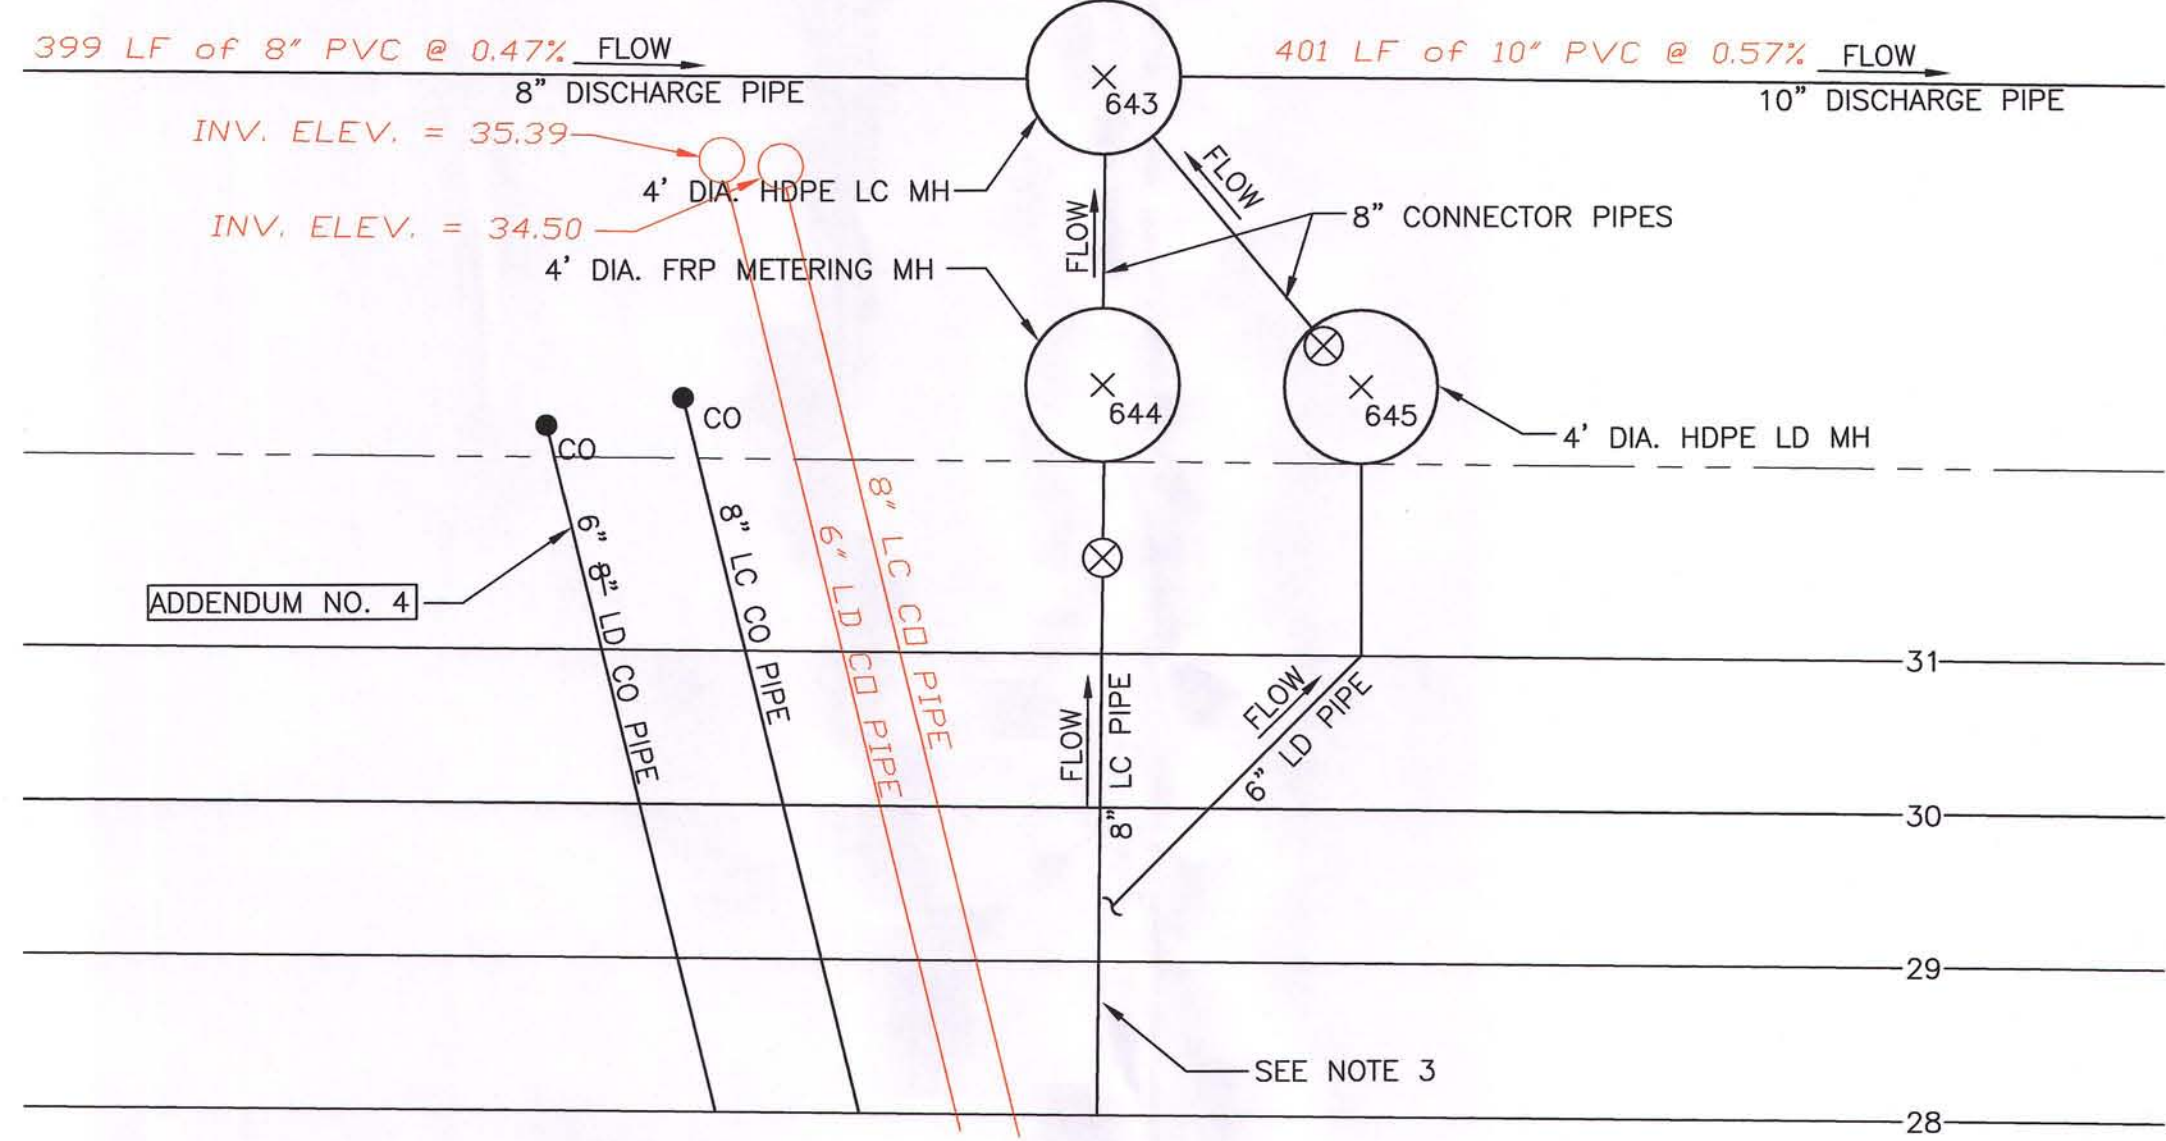 399 LF of 8" PVC @ 0.47%
FLOW
8" DISCHARGE PIPE
643
401 LF of 10" PVC @ 0.57%
FLOW
10" DISCHARGE PIPE
INV. ELEV. = 35.39
4' DIA. HDPE LC MH
INV. ELEV. = 34.50
4' DIA. FRP METERING MH
FLOW
FLOW
8" CONNECTOR PIPES
644
645
4' DIA. HDPE LD MH
CO
CO
6" 8" LD CO PIPE
8" LC CO PIPE
6" LD CO PIPE
8" LC CO PIPE
ADDENDUM NO. 4
31
FLOW
8" LC PIPE
FLOW
6" LD PIPE
30
29
SEE NOTE 3
28